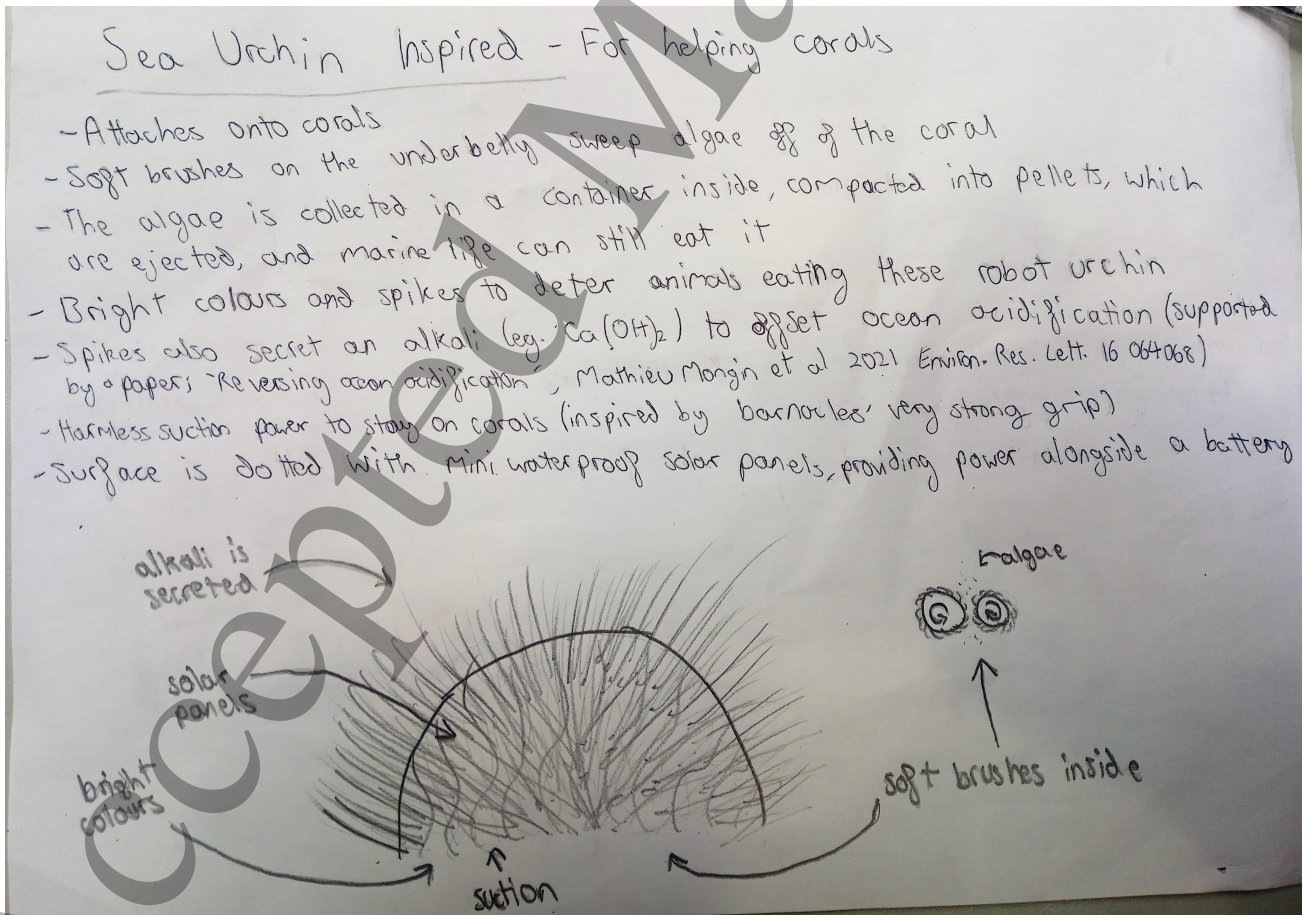 Sea Urchin Inspired - For helping corals
- Attaches onto corals
- Soft brushes on the underbelly sweep algae off of the coral
- The algae is collected in a container inside, compacted into pellets, which
are ejected, and marine life can still eat it
- Bright colours and spikes to deter animals eating these robot urchin
- Spikes also secret an alkali (eg. Ca(OH)2) to offset ocean acidification (supported
by a paper; "Reversing ocean acidification", Mathieu Mongin et al 2021 Environ. Res. Lett. 16 064068)
- Harmless suction power to stay on corals (inspired by barnacles' very strong grip)
- Surface is dotted with mini waterproof solar panels, providing power alongside a battery
alkali is
secreted
algae
solar
panels
bright
colours
soft brushes inside
suction
ccepted M